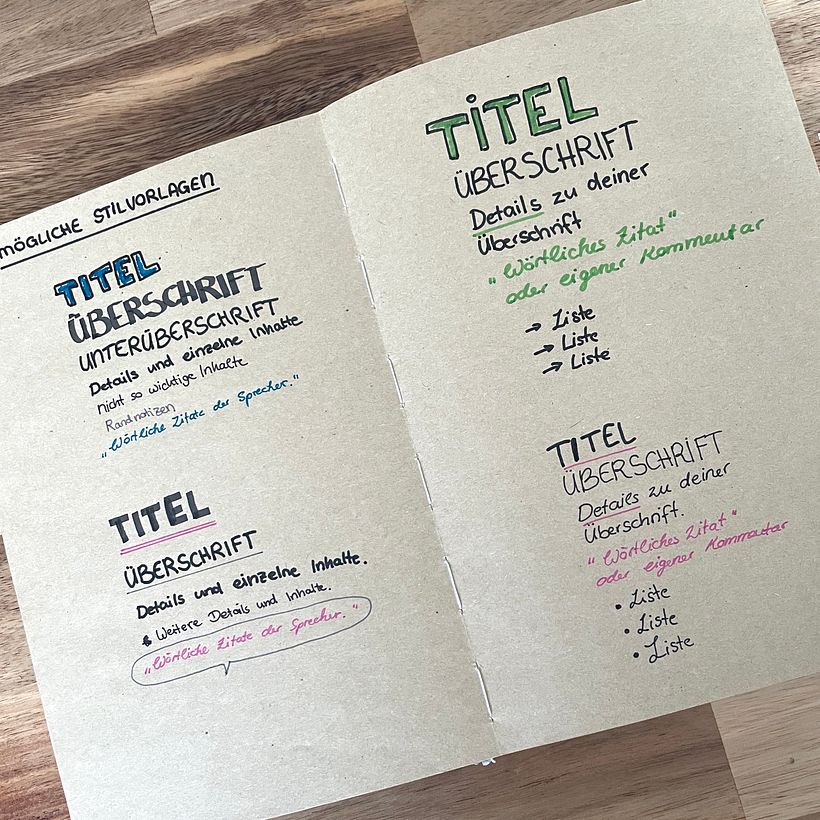 MÖGLICHE STILVORLAGEN
TITEL
ÜBERSCHRIFT
UNTERÜBERSCHRIFT
Details und einzelne Inhalte
nicht so wichtige Inhalte
Randnotizen
„Wörtliche Zitate der Sprecher.“
TITEL
ÜBERSCHRIFT
Details und einzelne Inhalte.
Weitere Details und Inhalte.
„Wörtliche Zitate der Sprecher.“
TITEL
ÜBERSCHRIFT
Details zu deiner
Überschrift
„Wörtliches Zitat“
oder eigener Kommentar
→ Liste
→ Liste
→ Liste
TITEL
ÜBERSCHRIFT
Details zu deiner
Überschrift.
„Wörtliches Zitat“
oder eigener Kommentar
• Liste
• Liste
• Liste